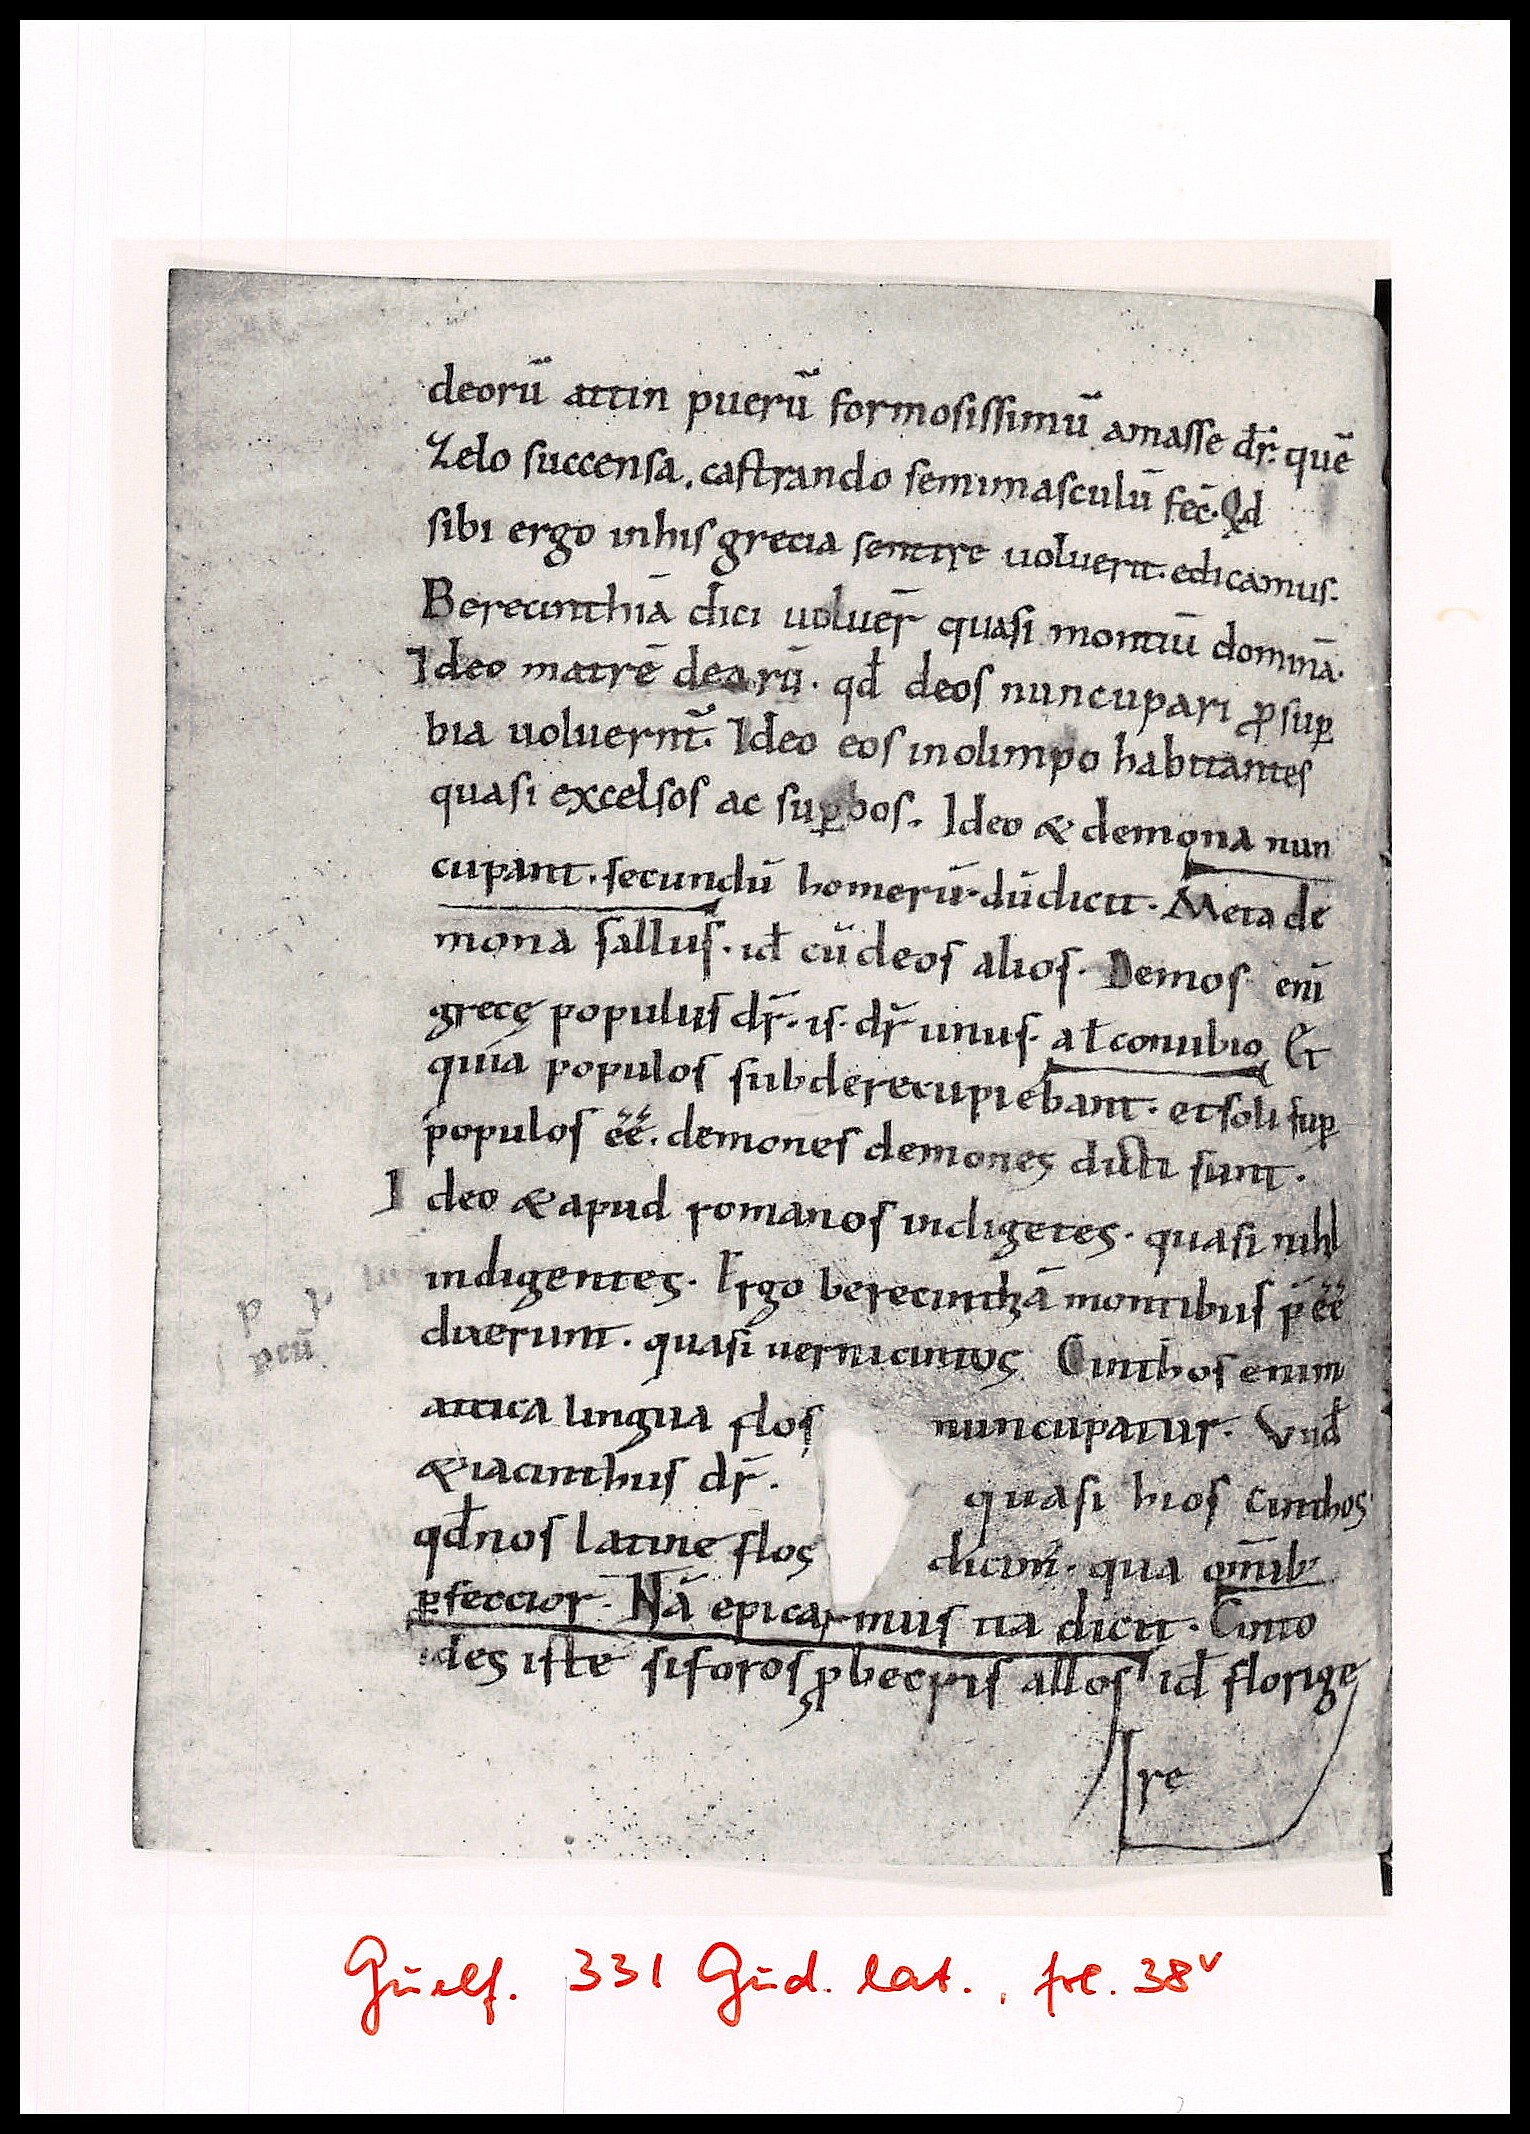 deorū attin puerū formosissimū amasse dr̄. quē
Zelo succensa. castrando semimasculū fec̄. Qd
sibi ergo in his grecia sentire uoluerit. edicamus.
Berecinthiā dici uoluer̄ quasi montiū dominā.
Ideo matrē deorū. qđ deos nuncupari ꝓ suꝑ
bia uoluerint̄. Ideo eos in olimpo habitantes
quasi excelsos ac suꝑbos. Ideo & demona nun
cupant. secundū homerū. dū dicit. Meta de
mona sallus. id̄ cū deos alios. Demos eni̅
grecę populus dr̄. is. dr̄ unus. at̄ conubio Et
quia populos subderecupiebant. et soli suꝑ
populos ēē. demones demones dicti sunt.
Ideo & apud romanos indigetes. quasi nihl
indigentes. Ergo berecinthiā montibus p̄ ēē
dixerunt. quasi vernicintos Cinthos enim
attica lingua flos nuncupatur. Vnđ
& iacinthus dr̄. quasi bios cinthos
qđ nos latine flos dicim̄. qua om̄ib
ꝑfeccior. Nā epicarmus ita dicit. Cinto
des iste siforos ꝓbecpis allos id̄ florige
re
p
pcū
Guelf. 331 Gud. lat., fol. 38v